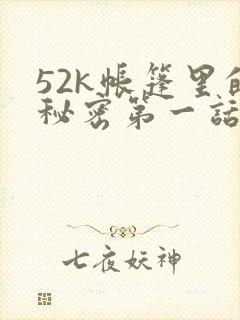 52k帐篷里的
秘密第一話
七夜妖神